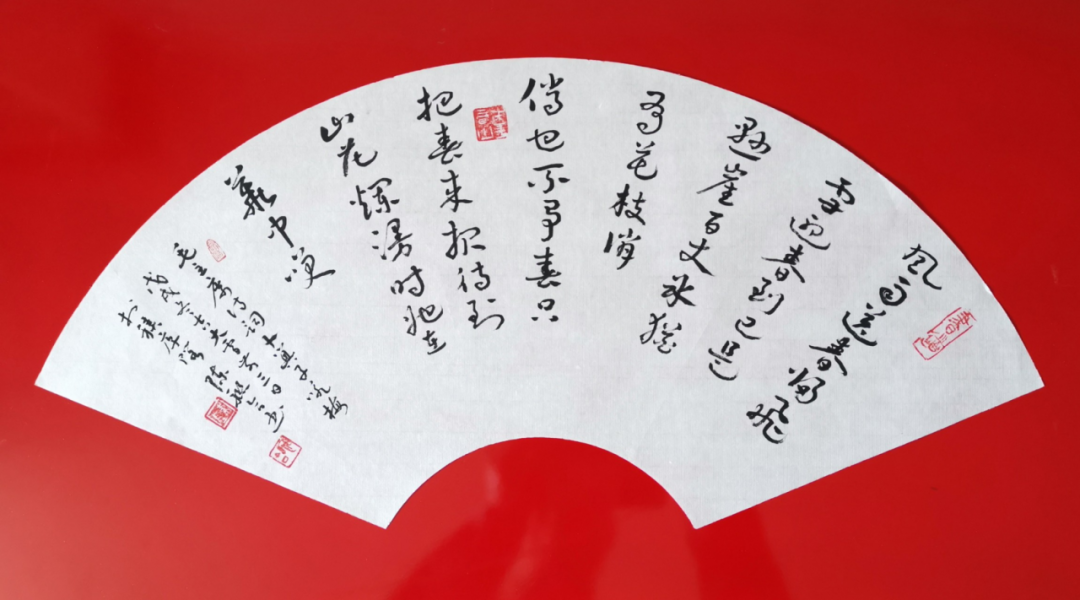 风雨送春归飞
雪迎春到已是
悬崖百丈冰犹
有花枝俏
俏也不争春只
把春来报待到
山花烂漫时她在
丛中笑
毛主席诗词卜算子咏梅
戊戌大雪日陈书